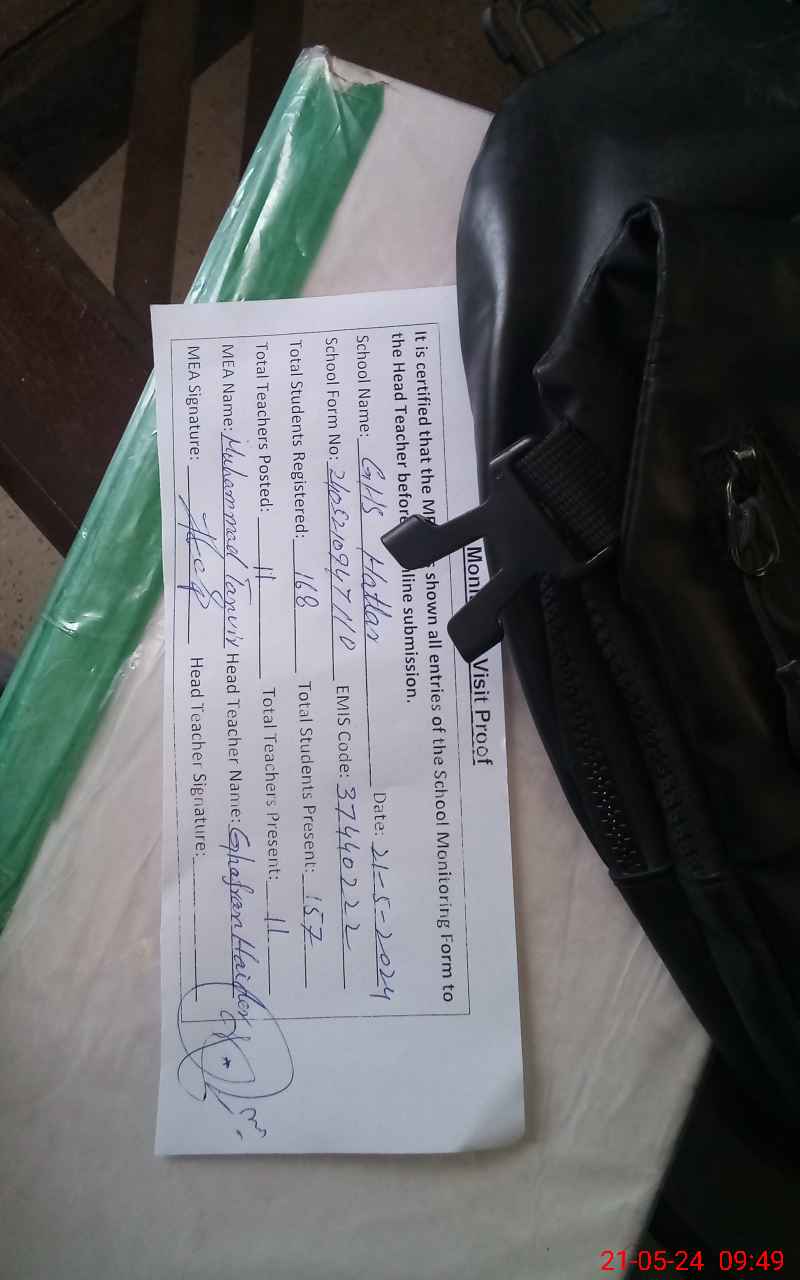 Visit Proof
It is certified that the shown all entries of the School Monitoring Form to
the Head Teacher submission.
School Name: GHS Hattar Date: 21-5-2024
School Form No: EMIS Code: 37440222
Total Students Registered: 168 Total Students Present: 157
Total Teachers Posted: 11 Total Teachers Present: 11
MEA Name: Muhammad Tanvir Head Teacher Name: Haider
MEA Signature: Head Teacher Signature:
21-05-24 09:49